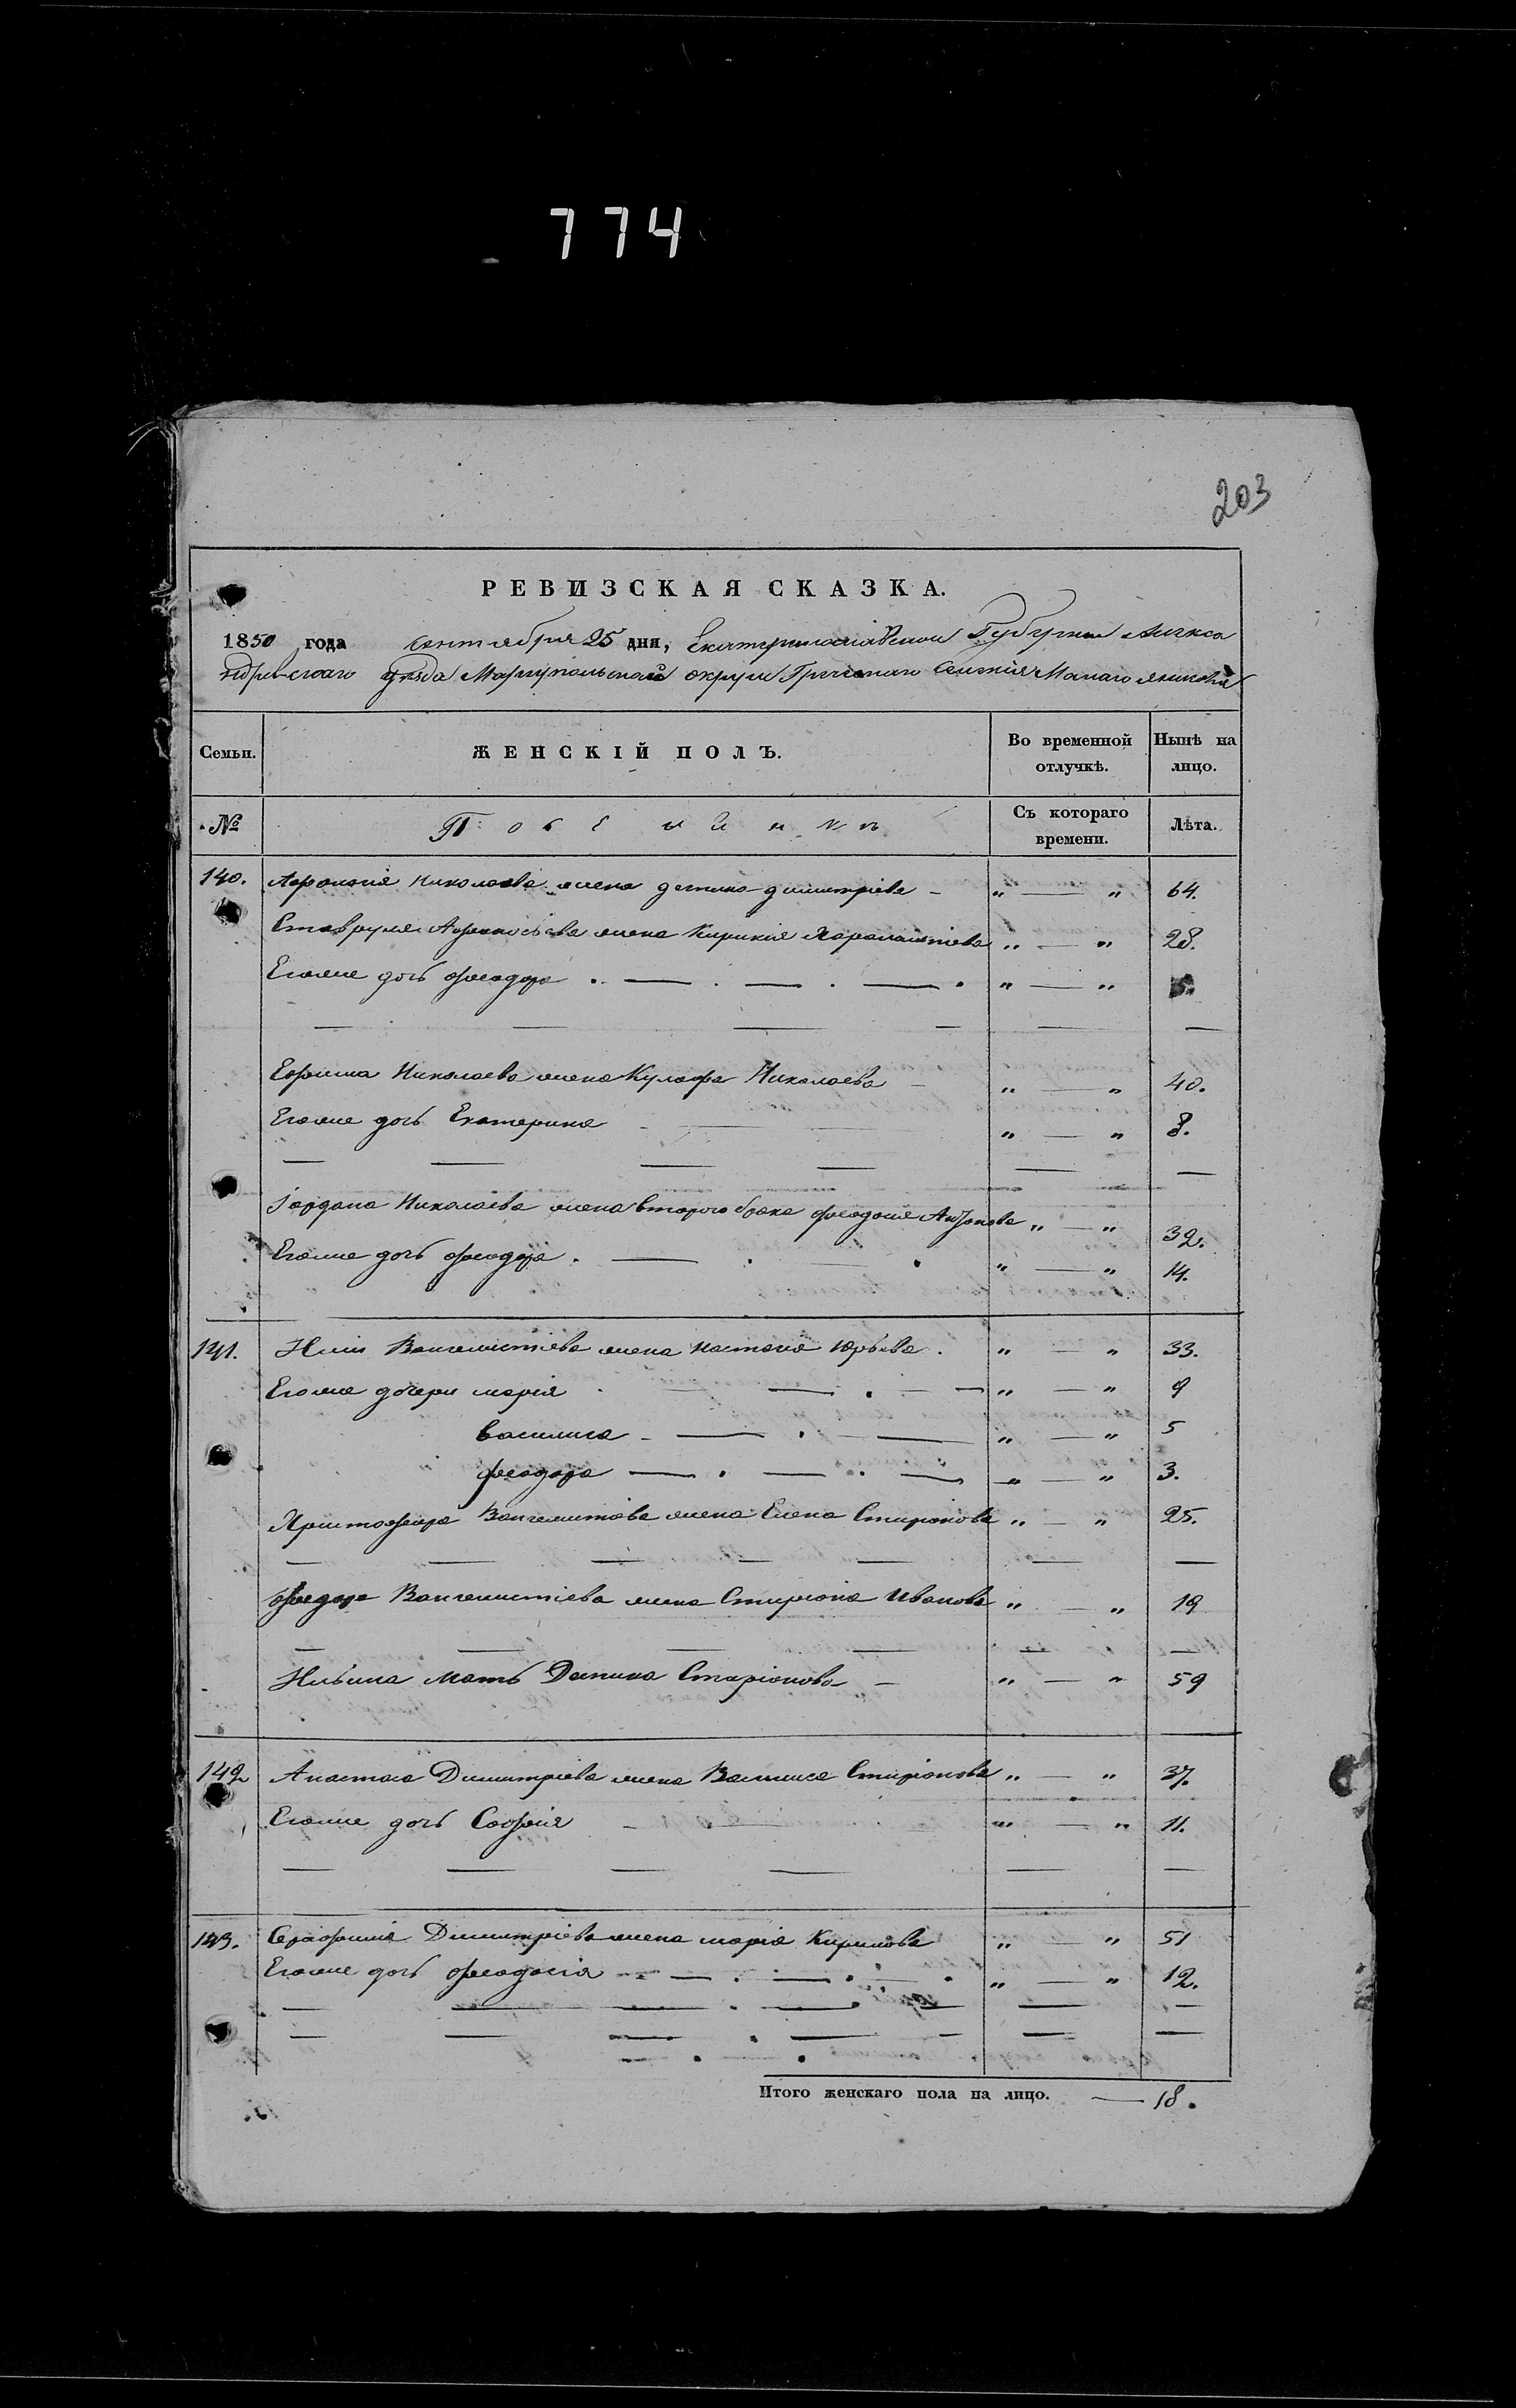 774
203
РЕВИЗСКАЯ СКАЗКА.
1850 года сентября 25 дня, Екатеринославской Губернии Алекса
ндровскаго уезда Мариупольскаго округи Греческаго Селения Малаго Янисоля
Семьи. ЖЕНСКІЙ ПОЛЪ. Во временной отлучкѣ. Нынѣ на лицо.
№ Съ котораго времени. Лѣта.
140. Николаева жена димитріева „ — „ 64.
Ставруля жена Кирикія Харалампіева „ — „ 28.
Егоже дочь феодора „ — „
Ефима Николаева жена Кулафа Николаева „ — „ 40.
Егоже дочь Екатерина „ — „ 8.
Іордана Николаева жена втораго брака феодосія „ — „ 32.
Егоже дочь феодора „ — „ 14.
141. Илии жена настасія Юрьева „ — „ 33.
Егоже дочери марія „ — „ 9
василиса „ — „ 5
феодора „ — „ 3.
Христофора жена Елена Спиріонова „ — „ 25.
феодора жена Ивонова „ — „ 19
Ильина мать „ — „ 59
142 Анастаса Димитріева жена Василиса Спиріонова „ — „ 37.
Егоже дочь Софія „ — „ 11.
143. Серафима Димитріева жена марія Кирилова „ — „ 51
Егоже дочь феодосія „ — „ 12.
Итого женскаго пола на лицо. — 18.